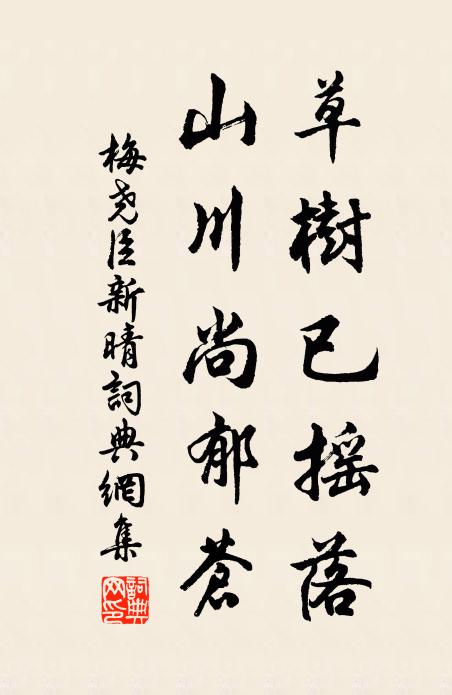 草樹已摇落
山川尚郁蒼
梅堯臣新晴詞典網集
詞典網印